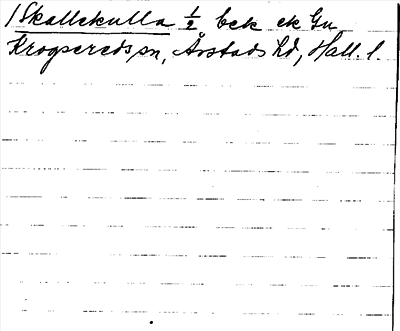 1 Skallekulla ½ bek ek Gn
Krogsereds sn, Årstads hd, Hall. l.